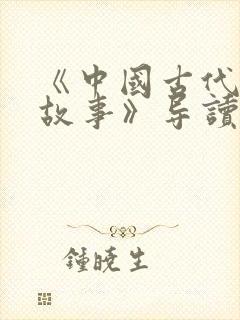 《中國古代
故事》导讀
鍾曉生